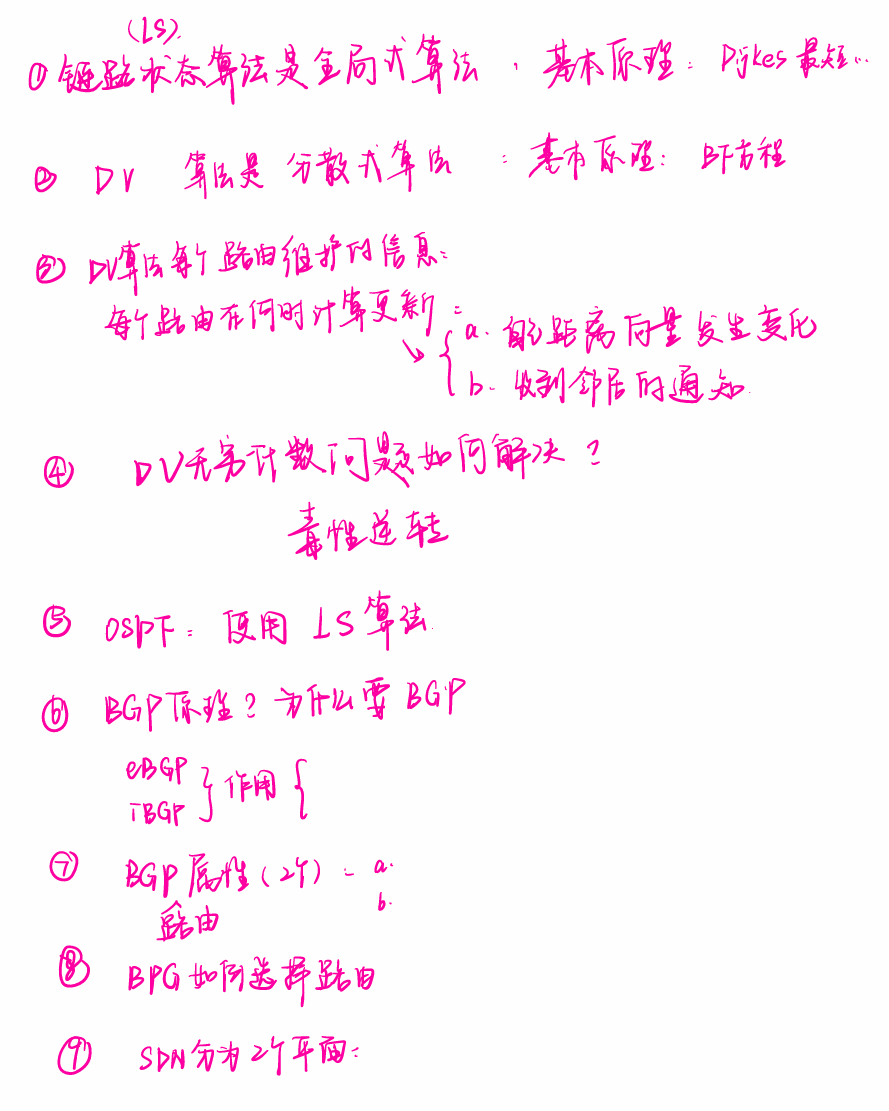 (LS)
① 链路状态算法是全局式算法，基本原理：Dijkes最短..
② DV 算法是分散式算法：基本原理：BF方程
③ DV算法每个路由维护的信息：
每个路由在何时计算更新：
a. 自己距离向量发生变化
b. 收到邻居的通知
④ DV无穷计数问题如何解决？
毒性逆转
⑤ OSPF：使用 LS 算法.
⑥ BGP原理？为什么要 BGP
eBGP
iBGP } 作用 {
⑦ BGP 属性(2个)：a.
路由 b.
⑧ BPG如何选择路由
⑨ SDN分为2个平面：